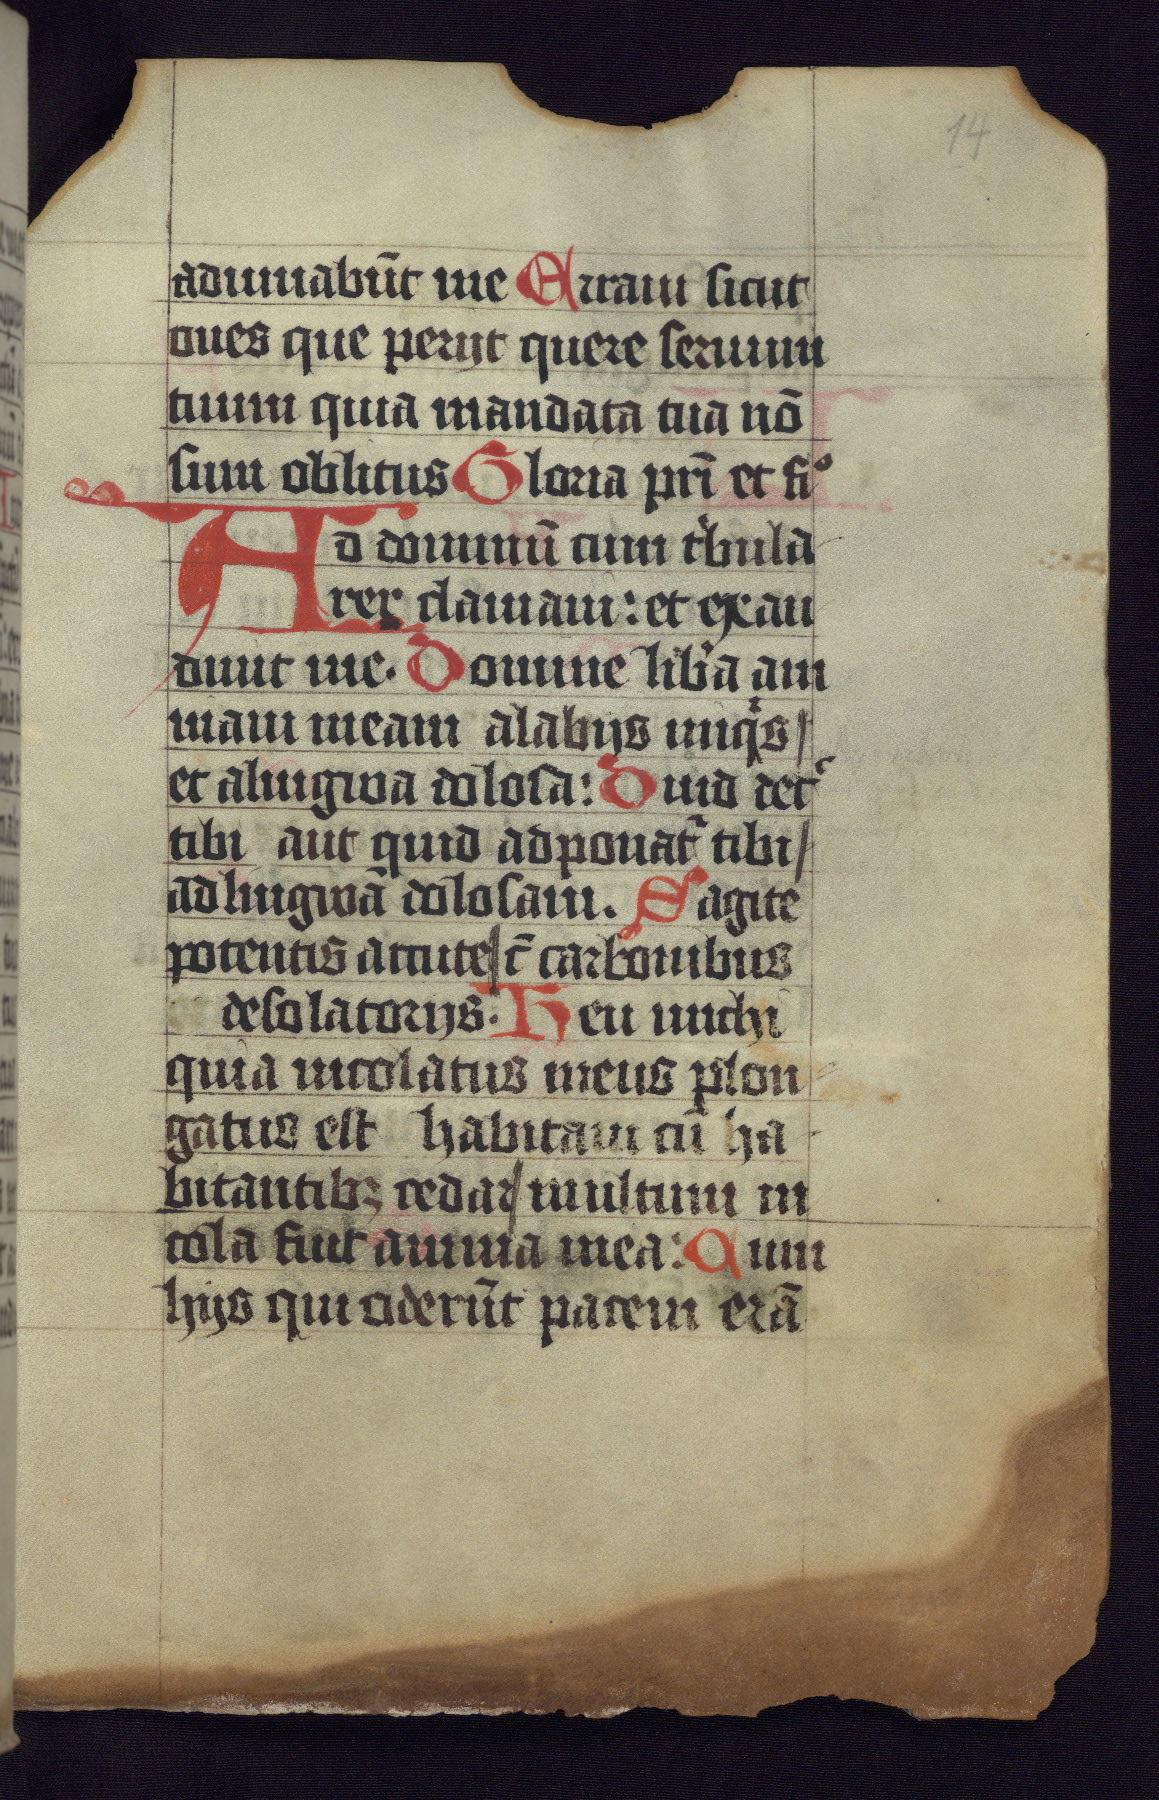 14
adiuuabūt me Erraui sicut
oues que perijt quere seruum
tuum quia mandata tua nō
sum oblitus Gloria pr̄i et fiº
Ad dominū cum tͥbula
rer clamaui: et exau
diuit me. Domine lib̓a ani
mam meam alabijs iniqͥs
et alingwa dolosa: Quid det̓
tibi aut quid adponat̓ tibi
ad lingwā dolosam. Sagite
potentis accute c̄ carbonibus
desolatorijs. Heu michi
quia incolatus meus plon
gatus est habitaui cū ha
bitantibꝫ cedar multum in
cola fuit anima mea: Cum
hijs qui oderūt pacem erā